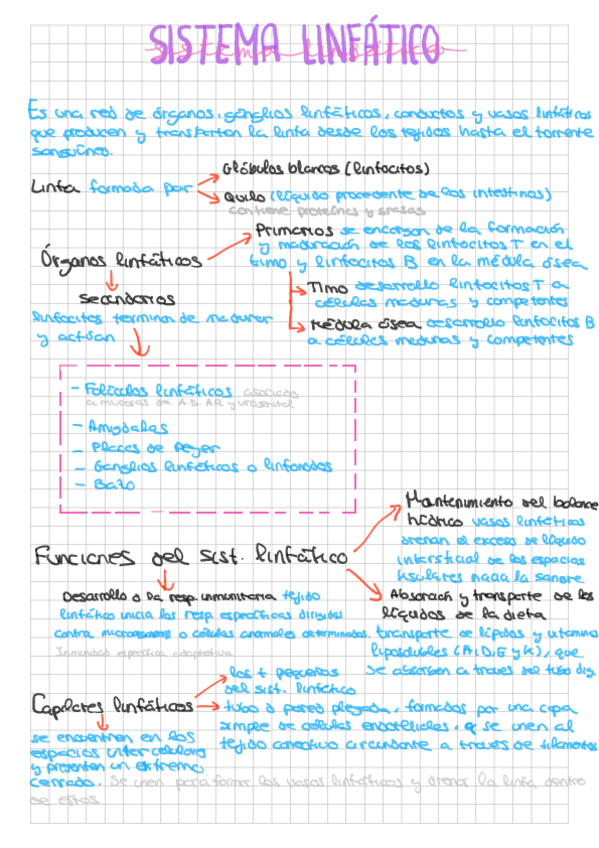 SISTEMA LINFÁTICO
sistema linfático
Es una red de órganos, ganglios linfáticos, conductos y vasos linfáticos
que producen y transportan la linfa desde los tejidos hasta el torrente
sanguíneo.
Glóbulos blancos (linfocitos)
Linfa formada por
Quilo (líquido procedente de los intestinos)
contiene proteínas y grasas
Primarios se encargan de la formación
y maduración de los linfocitos T en el
timo y linfocitos B en la médula ósea
Órganos linfáticos
Timo desarrollo linfocitos T a
células maduras y competentes
Médula ósea desarrollo linfocitos B
a células maduras y competentes
secundarios
linfocitos terminan de madurar
y activan
- Folículos linfáticos asociado
a mucosas de A.D, AR y urogenital
- Amígdalas
- Placas de Peyer
- Ganglios linfáticos o linfonodos
- Bazo
Mantenimiento del balance
hídrico vasos linfáticos
drenan el exceso de líquido
intersticial de los espacios
tisulares hacia la sangre
Funciones del sist. linfático
Desarrollo d la resp. inmunitaria tejido
linfático inicia las resp. específicas dirigidas
contra microorganismos o células anormales determinadas.
Inmunidad específica adaptativa
Absorción y transporte de los
líquidos de la dieta
transporte de lípidos y vitaminas
liposolubles (A, D, E y K), que
se absorben a través del tubo dig.
los + pequeños
del sist. linfático
Capilares linfáticos
tubo d pared plegada, formados por una capa
simple de células endoteliales, q se unen al
tejido conectivo circundante a través de filamentos
se encuentran en los
espacios intercelulares
y presentan un extremo
cerrado. Se unen para formar los vasos linfáticos y drenar la linfa dentro
de estos